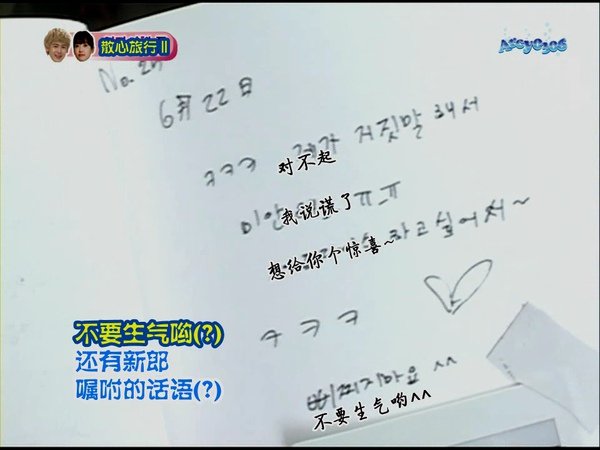 散心旅行 II
No.
6月 22日
ㅋㅋㅋ 제가 거짓말 해서
对不起
미안 ㅠ_ㅠ
我说谎了
하고 싶어서~
想给你个惊喜~
ㅋㅋㅋ
不要生气哟(?)
还有新郎
嘱咐的话语(?)
삐찌지마요 ^^
不要生气哟^^